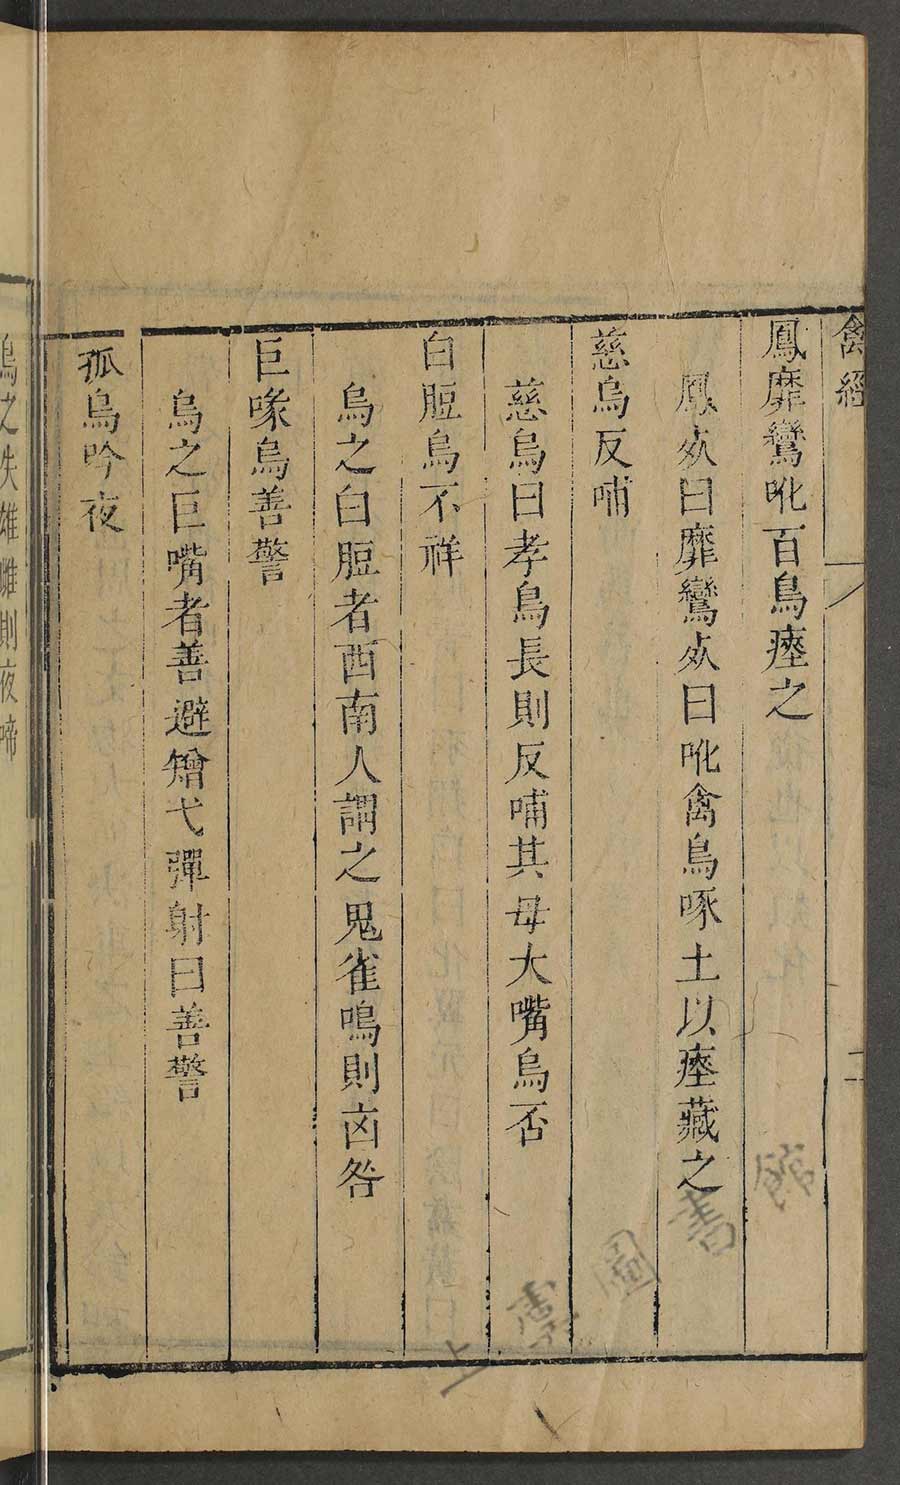 禽經 二
鳳靡鸞吪百鳥瘞之
鳳死曰靡鸞死曰吪禽鳥啄土以瘞藏之
慈烏反哺
慈烏曰孝鳥長則反哺其母大嘴烏否
白脰烏不祥
烏之白脰者西南人謂之鬼雀鳴則㐫咎
巨喙烏善警
烏之巨嘴者善避矰弋彈射曰善警
孤烏吟夜
烏之失雄雌則夜啼